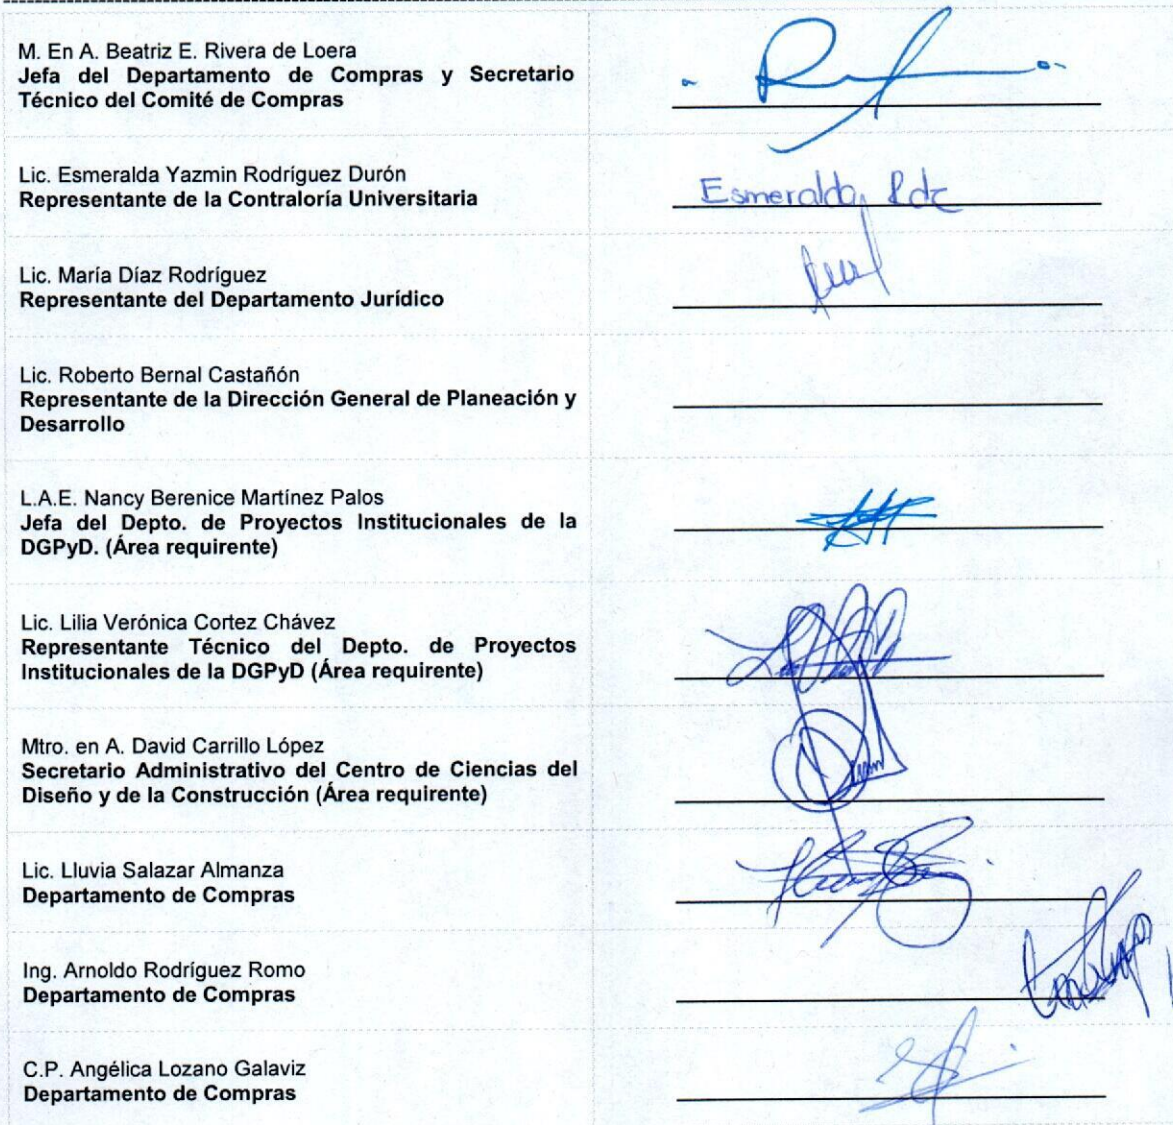 M. En A. Beatriz E. Rivera de Loera
Jefa del Departamento de Compras y Secretario
Técnico del Comité de Compras
Lic. Esmeralda Yazmin Rodríguez Durón
Representante de la Contraloría Universitaria
Esmeralda Rdz
Lic. María Díaz Rodríguez
Representante del Departamento Jurídico
Lic. Roberto Bernal Castañón
Representante de la Dirección General de Planeación y
Desarrollo
L.A.E. Nancy Berenice Martínez Palos
Jefa del Depto. de Proyectos Institucionales de la
DGPyD. (Área requirente)
Lic. Lilia Verónica Cortez Chávez
Representante Técnico del Depto. de Proyectos
Institucionales de la DGPyD (Área requirente)
Mtro. en A. David Carrillo López
Secretario Administrativo del Centro de Ciencias del
Diseño y de la Construcción (Área requirente)
Lic. Lluvia Salazar Almanza
Departamento de Compras
Ing. Arnoldo Rodríguez Romo
Departamento de Compras
C.P. Angélica Lozano Galaviz
Departamento de Compras